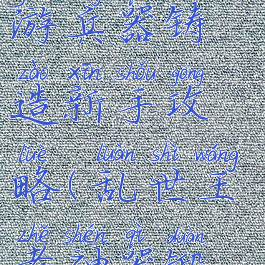 游兵器铸
zào xīn shǒu gōng
造新手攻
lüè luàn shì wáng
略(乱世王
zhě shén qì duàn
者神器锻